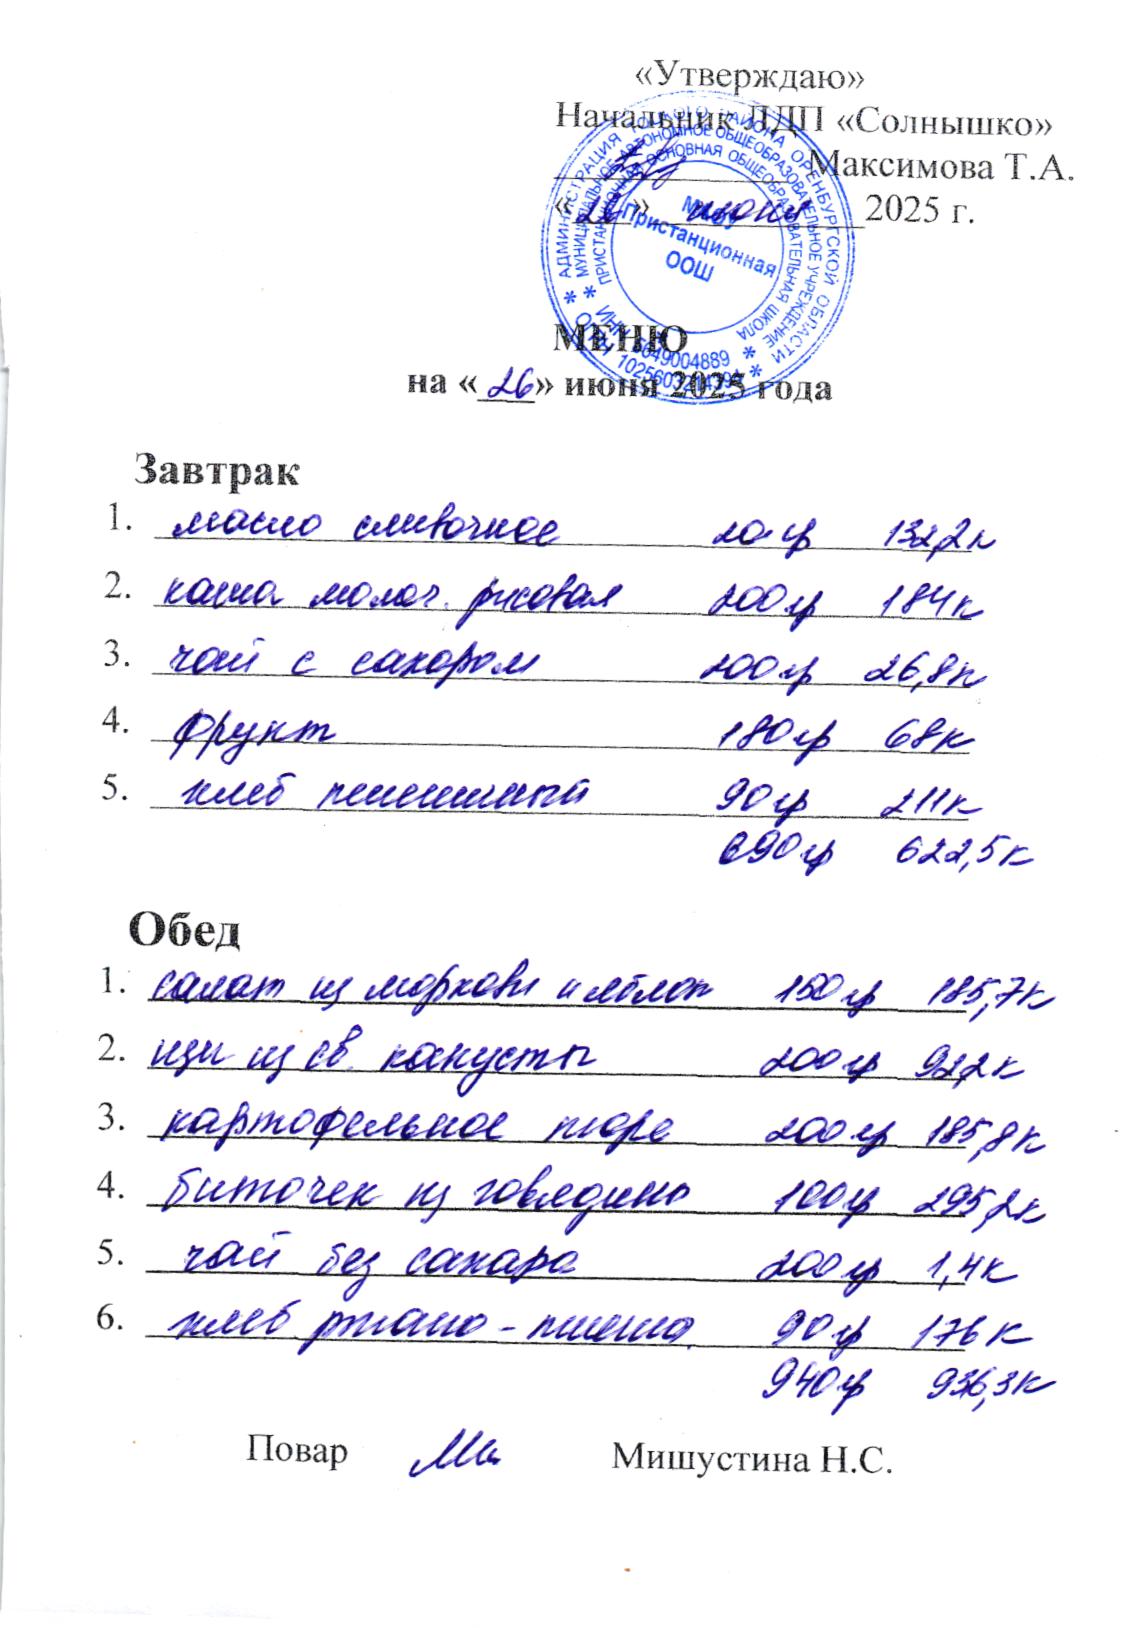 «Утверждаю»
Начальник ЛДП «Солнышко»
Максимова Т.А.
«26» июня 2025 г.
АДМИНИСТРАЦИЯ ТОЦКОГО РАЙОНА ОРЕНБУРГСКОЙ ОБЛАСТИ
МУНИЦИПАЛЬНОЕ АВТОНОМНОЕ ОБЩЕОБРАЗОВАТЕЛЬНОЕ УЧРЕЖДЕНИЕ
ПРИСТАНЦИОННАЯ ОСНОВНАЯ ОБЩЕОБРАЗОВАТЕЛЬНАЯ ШКОЛА
Пристанционная
ООШ
МЕНЮ
на «26» июня 2025 года
Завтрак
1. масло сливочное 20 гр 132,2к
2. каша молоч. рисовая 200 гр 184к
3. чай с сахаром 200 гр 26,8к
4. фрукт 180 гр 68к
5. хлеб пшеничный 90 гр 211к
690 гр 622,5к
Обед
1. салат из моркови и яблок 150 гр 185,7к
2. щи из св. капусты 200 гр 92,2к
3. картофельное пюре 200 гр 185,8к
4. биточек из говядины 100 гр 295,2к
5. чай без сахара 200 гр 1,4к
6. хлеб ржано-пшенич. 90 гр 176к
940 гр 936,3к
Повар Мишустина Н.С.